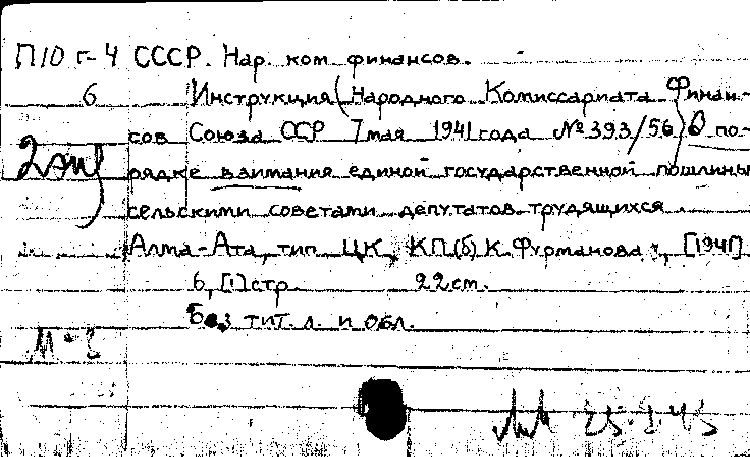 П10 г-4 СССР. Нар. ком финансов.
6 Инструкция (Народного Комиссариата Финан-
сов Союза ССР 7 мая 1941 года № 393/56) О по-
2 экз
рядке взимания единой государственной пошлины
сельскими советами депутатов трудящихся
Алма-Ата, тип ЦК КП(б)К Фурманова, [1941]
6, [1] стр. 22 см.
Без тит. л. и обл.